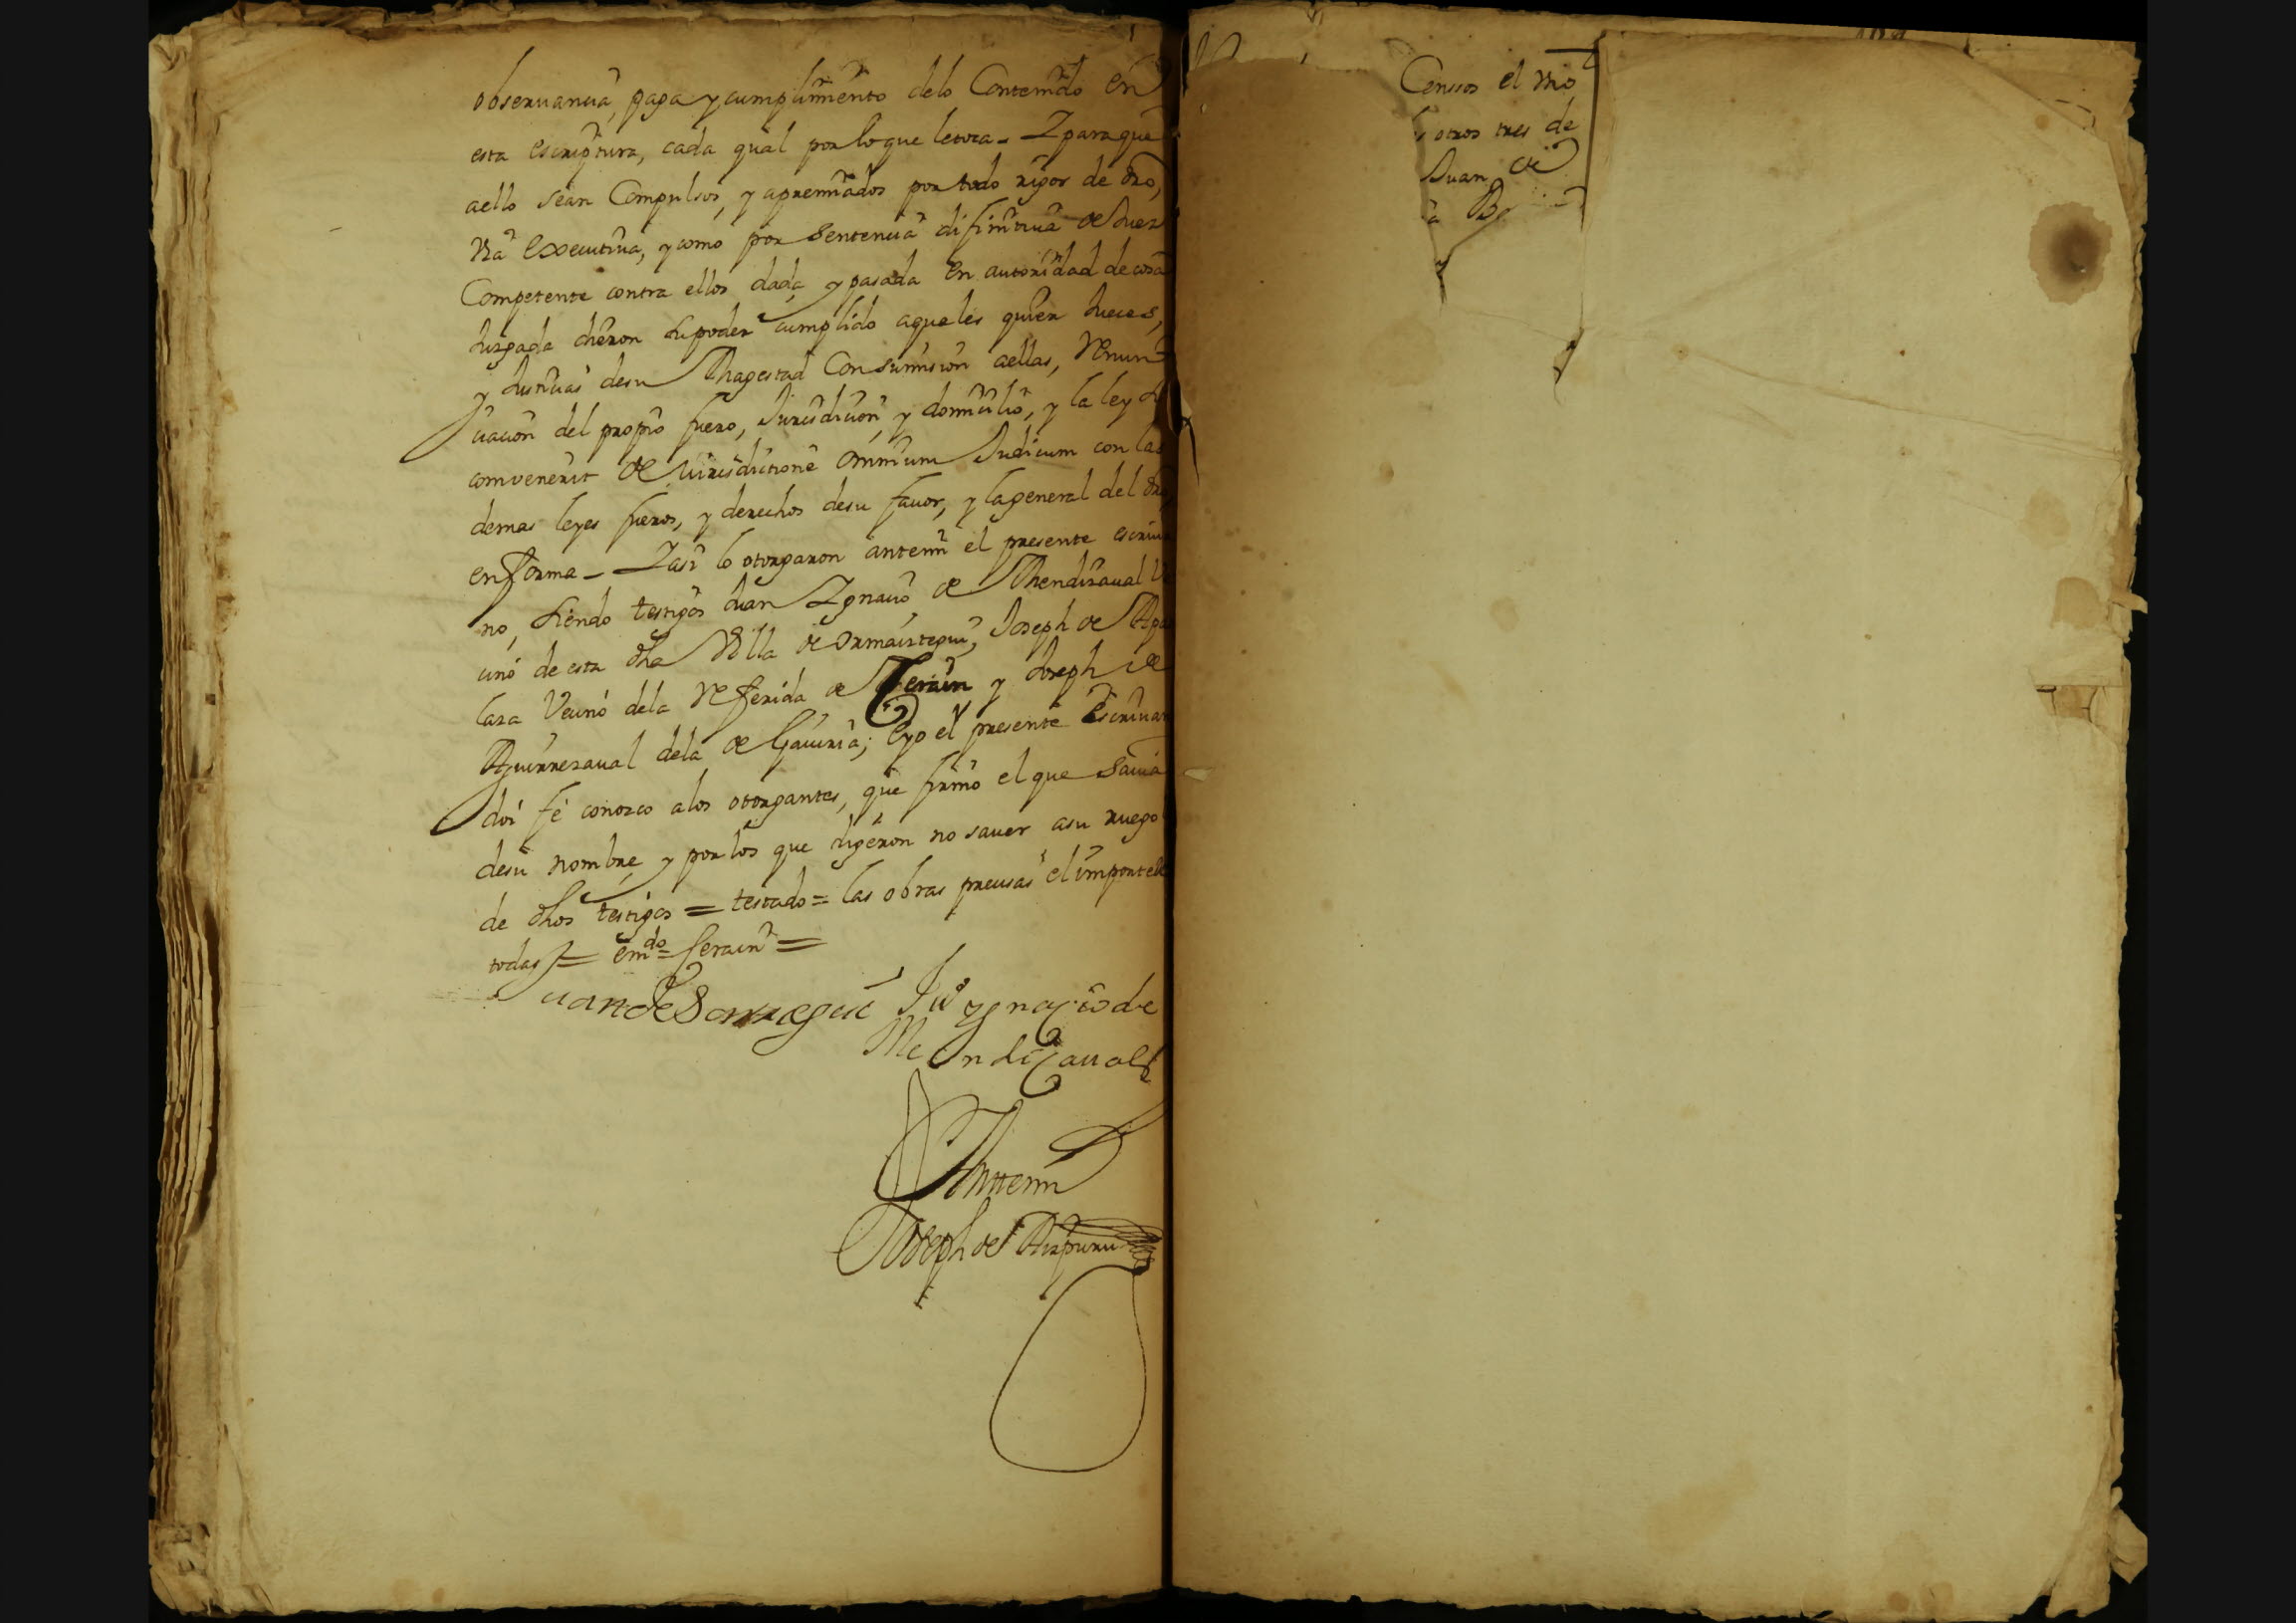 obseruancia, paga y cumplimiento delo Contenido en
esta escriptura, cada qual por lo que letoca - Y paraque
aello sean Compulsos, y apremiados por todo rigor de dro,
Via executiua, y como por Sentencia difinitiua de Juez
Competente contra ellos dada, y pasada en autoridad de cosa
Juzgada dieron su poder cumplido aquales quier Jueces,
y Justicias desu Magestad Con sumision aellas, renun
ciacion del propio fuero, Jurisdicion, y domicilio, y la ley si
convenerit de iurisdictione omnium Judicum con las
demas leyes fueros, y derechos desu fauor, y la general del dro,
en forma - Y asi lo otorgaron antemi el presente escriua
no, siendo testigos Juan Ygnacio de Mendizaual Ve
cino de esta dha Villa de Ormaiztegui, Joseph de Apa
laza Vecino dela referida de Cerain y Joseph de
Aguirrezaual dela de Gauiria; e yo el presente escriuano
doi fe conozco alos otorgantes, que firmo el que sauia
desu nombre, y por los que digeron no sauer asu ruego
de dhos testigos = testado = las obras precisas el importe de
todas = emdo = Cerain =
Juan de
Ju° ygnaçio de
Mendiçaual
Antemi
Joseph de Aizpuru
Censos el Mo
s otros tres de
Juan de
a